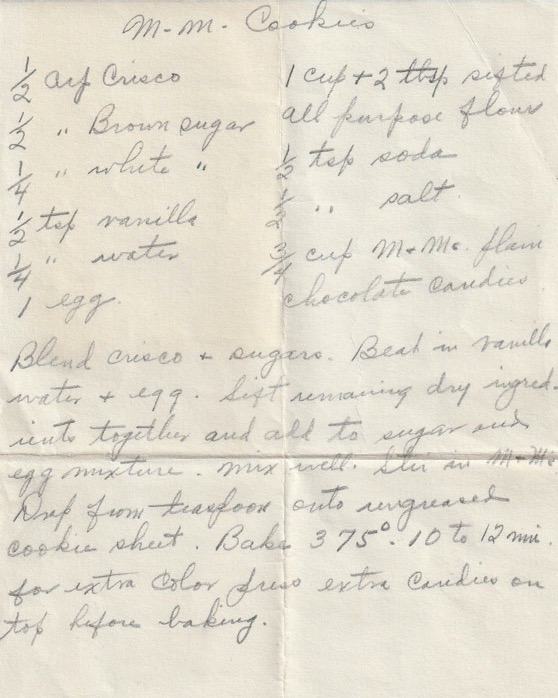 M-M. Cookies
1/2 cup Crisco
1/2 " Brown sugar
1/4 " white "
1/2 tsp vanilla
1/4 " water
1 egg.
1 cup + 2 tbsp sifted
all purpose flour
1/2 tsp soda
1/2 " salt.
3/4 cup M+Ms. plain
chocolate candies
Blend crisco + sugars. Beat in vanilla
water + egg. Sift remaining dry ingred-
ients together and add to sugar and
egg mixture. Mix well. Stir in M+Ms
Drop from teaspoon onto ungreased
cookie sheet. Bake 375°. 10 to 12 min.
for extra color press extra candies on
top before baking.